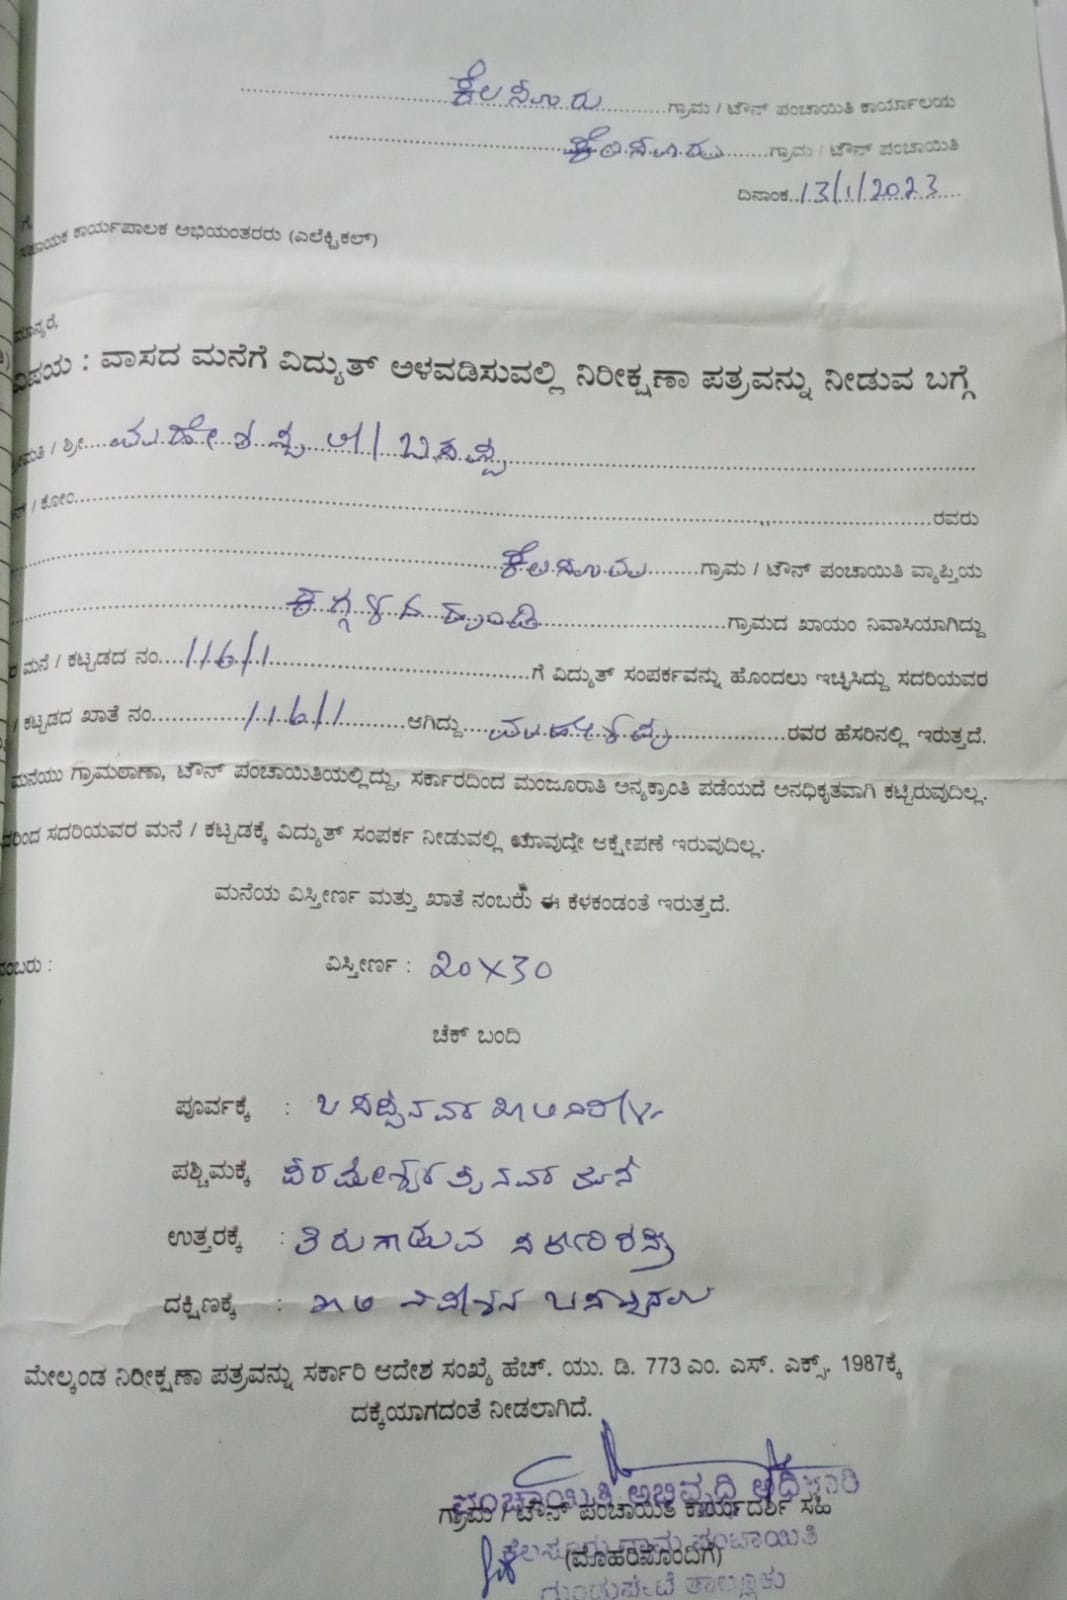 ಕೆಲಸೂರು ಗ್ರಾಮ / ಟೌನ್ ಪಂಚಾಯಿತಿ ಕಾರ್ಯಾಲಯ
ಕೆಲಸೂರು ಗ್ರಾಮ / ಟೌನ್ ಪಂಚಾಯಿತಿ
ದಿನಾಂಕ..13/1/2023
ಗೆ,
ಸಹಾಯಕ ಕಾರ್ಯಪಾಲಕ ಅಭಿಯಂತರರು (ಎಲೆಕ್ಟ್ರಿಕಲ್)
ಮಾನ್ಯರೆ,
ವಿಷಯ : ವಾಸದ ಮನೆಗೆ ವಿದ್ಯುತ್ ಅಳವಡಿಸುವಲ್ಲಿ ನಿರೀಕ್ಷಣಾ ಪತ್ರವನ್ನು ನೀಡುವ ಬಗ್ಗೆ
/ ಶ್ರೀ....ಮಹೇಶಪ್ಪ ಬಿ// ಬಸಪ್ಪ
/ ಕೋಂ ರವರು
ಕೆಲಸೂರು ಗ್ರಾಮ / ಟೌನ್ ಪಂಚಾಯಿತಿ ವ್ಯಾಪ್ತಿಯ
ಕಗ್ಗಳದಹುಂಡಿ ಗ್ರಾಮದ ಖಾಯಂ ನಿವಾಸಿಯಾಗಿದ್ದು
ಮನೆ / ಕಟ್ಟಡದ ನಂ....116/1 ಗೆ ವಿದ್ಯುತ್ ಸಂಪರ್ಕವನ್ನು ಹೊಂದಲು ಇಚ್ಛಿಸಿದ್ದು ಸದರಿಯವರ
/ ಕಟ್ಟಡದ ಖಾತೆ ನಂ 116/1 ಆಗಿದ್ದು ಮಹೇಶಪ್ಪ ರವರ ಹೆಸರಿನಲ್ಲಿ ಇರುತ್ತದೆ.
ಮನೆಯು ಗ್ರಾಮಠಾಣಾ, ಟೌನ್ ಪಂಚಾಯಿತಿಯಲ್ಲಿದ್ದು, ಸರ್ಕಾರದಿಂದ ಮಂಜೂರಾತಿ ಅನ್ಯಕ್ರಾಂತಿ ಪಡೆಯದೆ ಅನಧಿಕೃತವಾಗಿ ಕಟ್ಟಿರುವುದಿಲ್ಲ.
ಸದರಿಯವರ ಮನೆ / ಕಟ್ಟಡಕ್ಕೆ ವಿದ್ಯುತ್ ಸಂಪರ್ಕ ನೀಡುವಲ್ಲಿ ಯಾವುದೇ ಆಕ್ಷೇಪಣೆ ಇರುವುದಿಲ್ಲ.
ಮನೆಯ ವಿಸ್ತೀರ್ಣ ಮತ್ತು ಖಾತೆ ನಂಬರು ಈ ಕೆಳಕಂಡಂತೆ ಇರುತ್ತದೆ.
ನಂಬರು : ವಿಸ್ತೀರ್ಣ : 20X30
ಚೆಕ್ ಬಂದಿ
ಪೂರ್ವಕ್ಕೆ :
ಪಶ್ಚಿಮಕ್ಕೆ ಪರಮೇಶ್ವರಪ್ಪನವರ ಮನೆ
ಉತ್ತರಕ್ಕೆ : ತಿರುಗಾಡುವ ಸರ್ಕಾರಿ ರಸ್ತೆ
ದಕ್ಷಿಣಕ್ಕೆ :
ಮೇಲ್ಕಂಡ ನಿರೀಕ್ಷಣಾ ಪತ್ರವನ್ನು ಸರ್ಕಾರಿ ಆದೇಶ ಸಂಖ್ಯೆ ಹೆಚ್. ಯು. ಡಿ. 773 ಎಂ. ಎಸ್. ಎಕ್ಸ್. 1987ಕ್ಕೆ
ದಕ್ಕೆಯಾಗದಂತೆ ನೀಡಲಾಗಿದೆ.
ಪಂಚಾಯಿತಿ ಅಭಿವೃದ್ಧಿ ಅಧಿಕಾರಿ
ಗ್ರಾಮ / ಟೌನ್ ಪಂಚಾಯಿತಿ ಕಾರ್ಯದರ್ಶಿ ಸಹಿ
ಕೆಲಸೂರು ಗ್ರಾಮ ಪಂಚಾಯಿತಿ
(ಮೊಹರಿನೊಂದಿಗೆ)
ಗುಂಡ್ಲುಪೇಟೆ ತಾಲ್ಲೂಕು